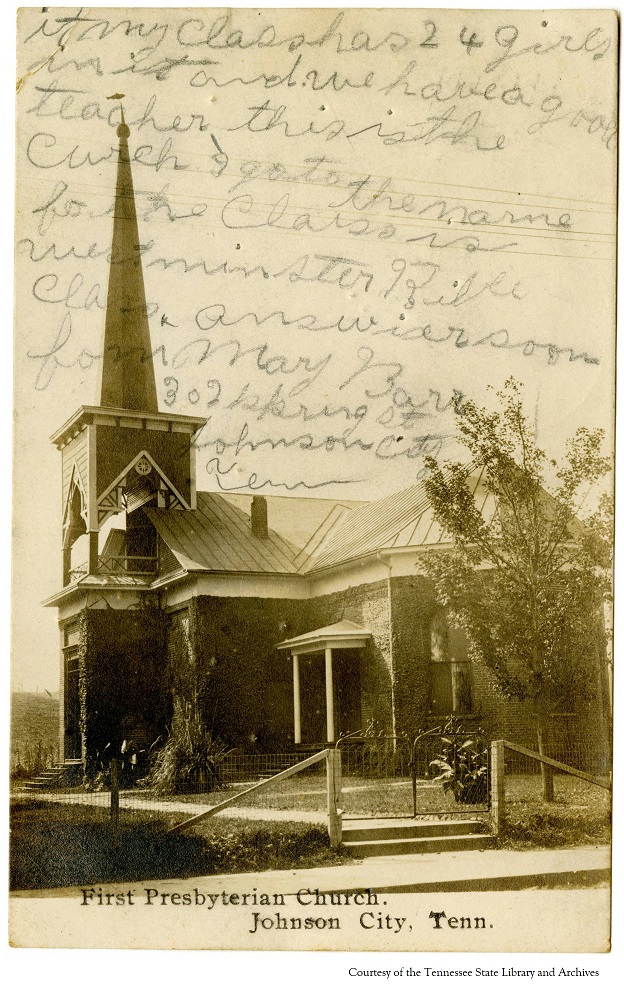 it my Class has 24 girls
in it and we have a good
teacher this is the
Curch I go to the name
for the Class is
westminster Bible
Class answier soon
from Mary Barr
302 Spring St
Johnson City
Tenn
First Presbyterian Church.
Johnson City, Tenn.
Courtesy of the Tennessee State Library and Archives